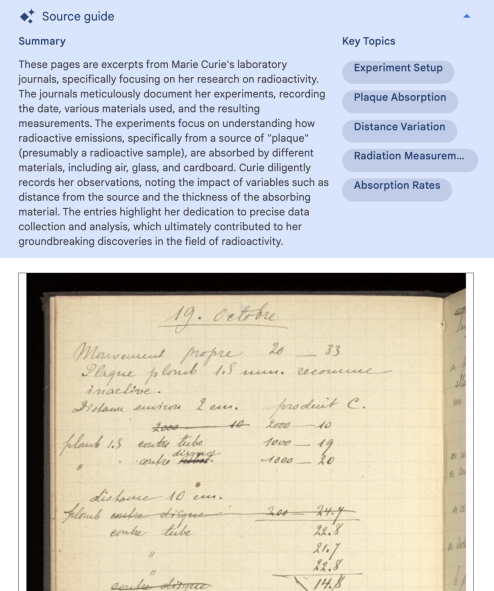 Source guide
Summary
These pages are excerpts from Marie Curie's laboratory
journals, specifically focusing on her research on radioactivity.
The journals meticulously document her experiments, recording
the date, various materials used, and the resulting
measurements. The experiments focus on understanding how
radioactive emissions, specifically from a source of "plaque"
(presumably a radioactive sample), are absorbed by different
materials, including air, glass, and cardboard. Curie diligently
records her observations, noting the impact of variables such as
distance from the source and the thickness of the absorbing
material. The entries highlight her dedication to precise data
collection and analysis, which ultimately contributed to her
groundbreaking discoveries in the field of radioactivity.
Key Topics
Experiment Setup
Plaque Absorption
Distance Variation
Radiation Measurem...
Absorption Rates
19. Octobre
Mouvement propre 20 — 33
Plaque plomb 1.5 mm. reconnue
inactive.
Distance environ 2 cm. produit C.
2000 — 10 2000 — 10
plomb 1.5 contre tube 1000 — 19
" " contre disque 1000 — 20
distance 10 cm.
plomb contre disque 200 — 24.7
contre tube 22.8
" 21.7
22.8
contre disque 14.8